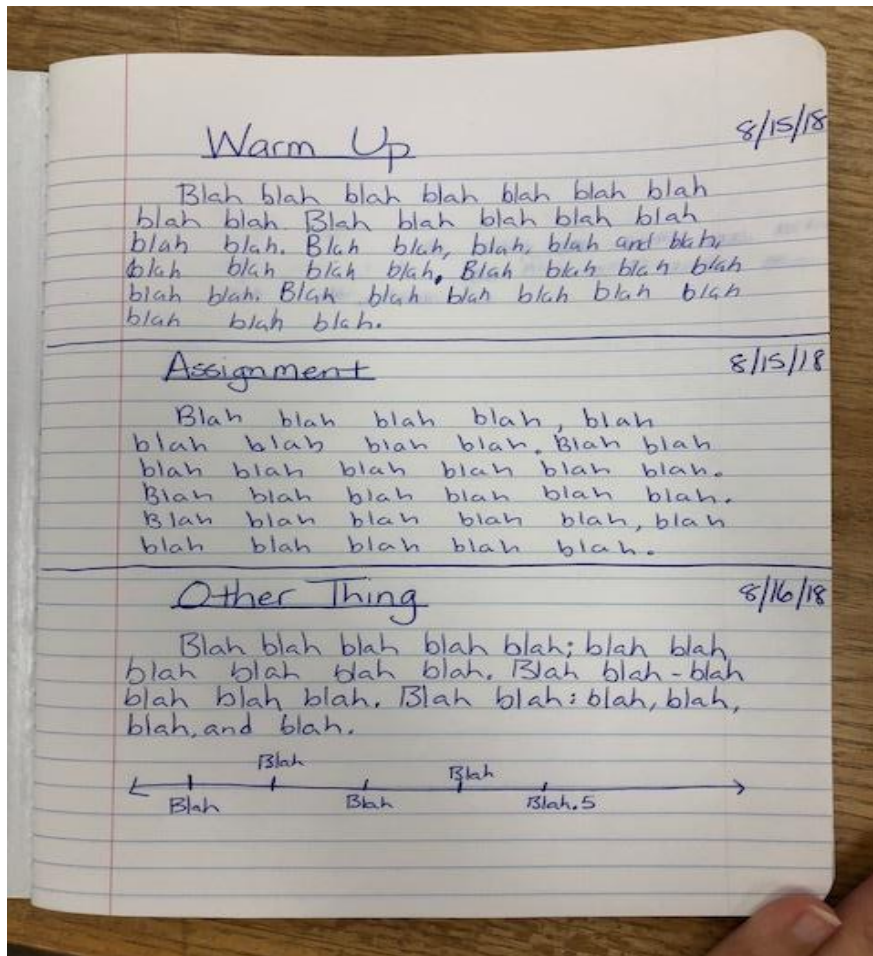 8/15/18
Warm Up
Blah blah blah blah blah blah blah
blah blah. Blah blah blah blah blah
blah blah. Blah blah, blah, blah and blah,
blah blah blah blah. Blah blah blah blah
blah blah. Blah blah blah blah blah blah
blah blah blah.
Assignment 8/15/18
Blah blah blah blah, blah
blah blah blah blah. Blah blah
blah blah blah blah blah blah.
Blah blah blah blah blah blah.
Blah blah blah blah blah, blah
blah blah blah blah blah.
Other Thing 8/16/18
Blah blah blah blah blah; blah blah
blah blah blah blah. Blah blah-blah
blah blah blah. Blah blah: blah, blah,
blah, and blah.
Blah Blah
Blah Blah Blah.5